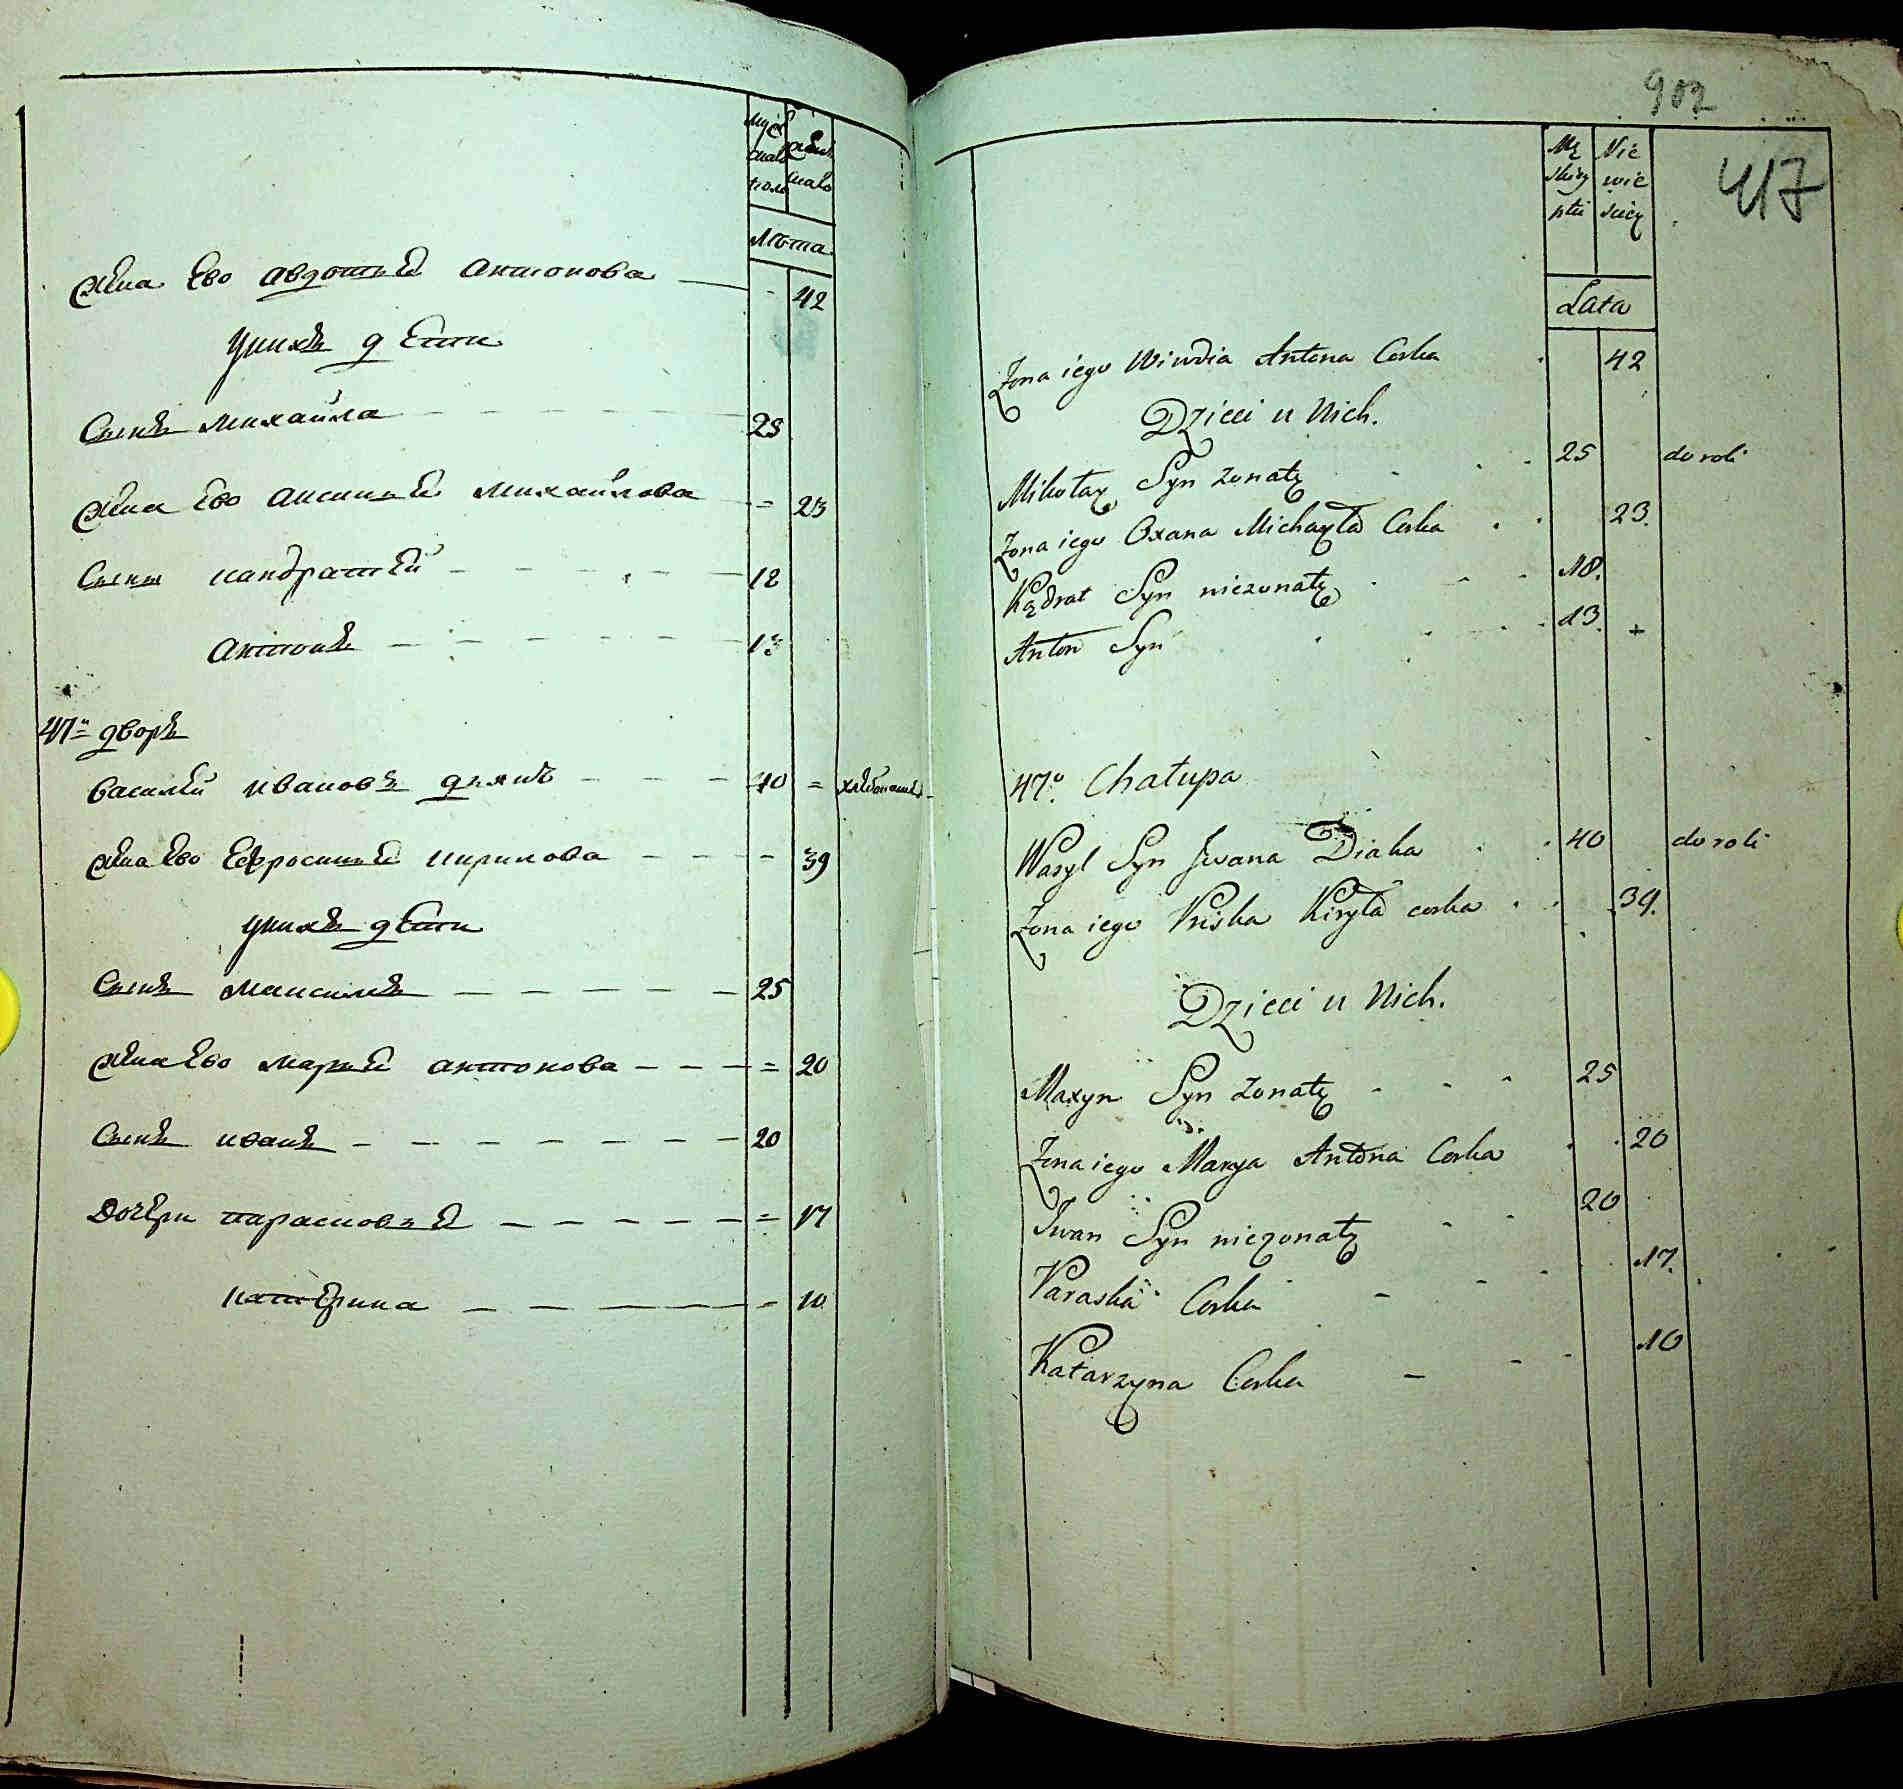 мужеска пола
женска
Лѣта
жена Ево авдотья антонова — - 42
у нихъ дѣти
Сынъ михайла — 25
жена Ево аксинья михайлова = 23
Сыны кандратей — 18
антонъ — 13
47й дворъ
василей ивановъ дьякъ — 40 =
жена Ево Ефросинья кирилова — - 39
у нихъ дѣти
Сынъ максимъ — 25
жена Ево марья антонова — = 20
Сынъ иванъ — 20
Дочери парасковья — = 17
катерина — = 10
902
417
Mę skiey płci
Nie wieściey
Lata
Zona iego Wiwdia Antona Corka 42
Dzieci u Nich.
Mikołay Syn zonaty 25 do roli
Zona iego Oxana Michayła Corka 23.
Kądrat Syn niezonaty 18.
Anton Syn 13. +
47o. Chałupa
Wasyl Syn Jwana Diaka 40 do roli
Zona iego Priska Kiryła corka 39.
Dzieci u Nich.
Maxym Syn zonaty 25
Zona iego Marya Antona Corka 20
Jwan Syn niezonaty 20
Paraska Corka 17.
Katarzyna Corka 10